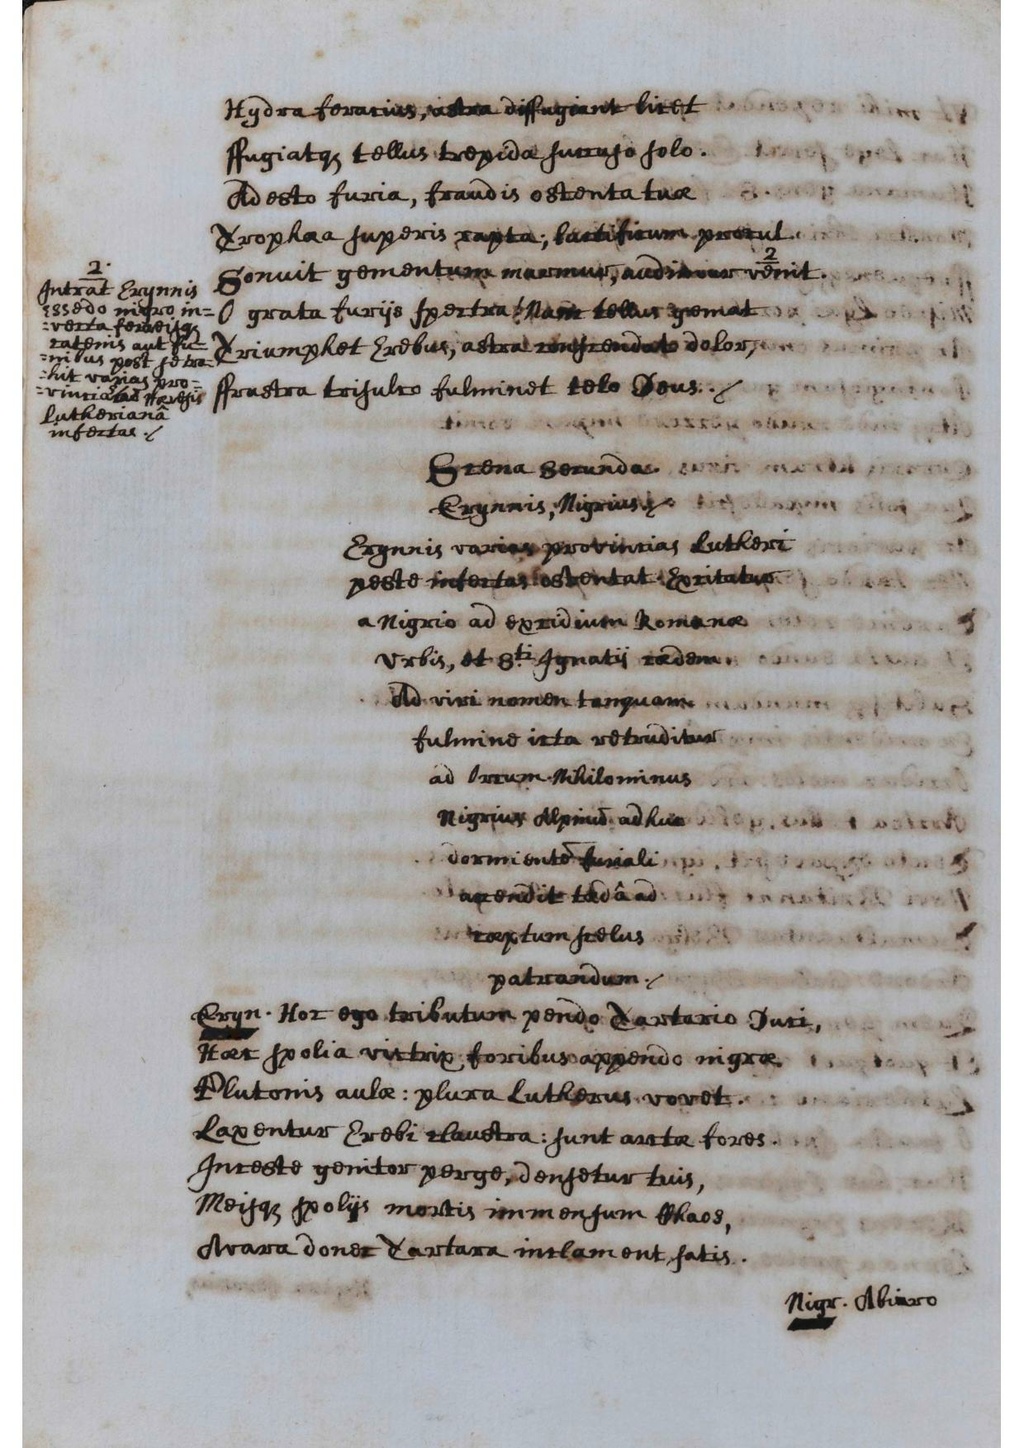 Hydra feracius, astra diffugiant licet
ffugiatq; tellus trepida succuso solo.
Adesto furia, fraudis ostenta tuæ
Trophæa superis rapta; lætificum procul
Sonuit gementum marmur, audimur venit.
2
O grata furijs spectra! Nam tellus gemat
Triumphet Erebus, astra confundat dolor,
ffrustra trisulco fulminet telo Deus./
2.
Intrat Erynnis
essedo nigro in=
=vecta ferreisq;
catenis aut fu-
=nibus post se tra-
=hit varias pro=
=vincias Hæresis
Lutherianâ
infectas./
Scena Secunda.
Erynnis, Nigrius./
Erynnis varias provincias Lutheri
peste infectas ostentat. Excitatur
a Nigrio ad excidium Romanæ
Urbis, et S.ti Ignatij cædem.
Ad viri nomen tanquam
fulmine icta retruditur
ad Orcum. Nihilominus
Nigrius Alpinū adhuc
dormientē furiali
accendit tædâ ad
cæptum scelus
patrandum./
Eryn. Hoc ego tributum pendo Tartario Duci,
Hæc spolia victrix foribus appendo nigræ
Plutonis aulæ: plura Lutherus vovet.
Laxentur Erebi claustra: sunt arctæ fores.
Inceste genitor perge, densetur tuis,
Meisq; spolijs mortis immensum Chaos,
Avara donec Tartara inclament satis.
Nigr. Abimro